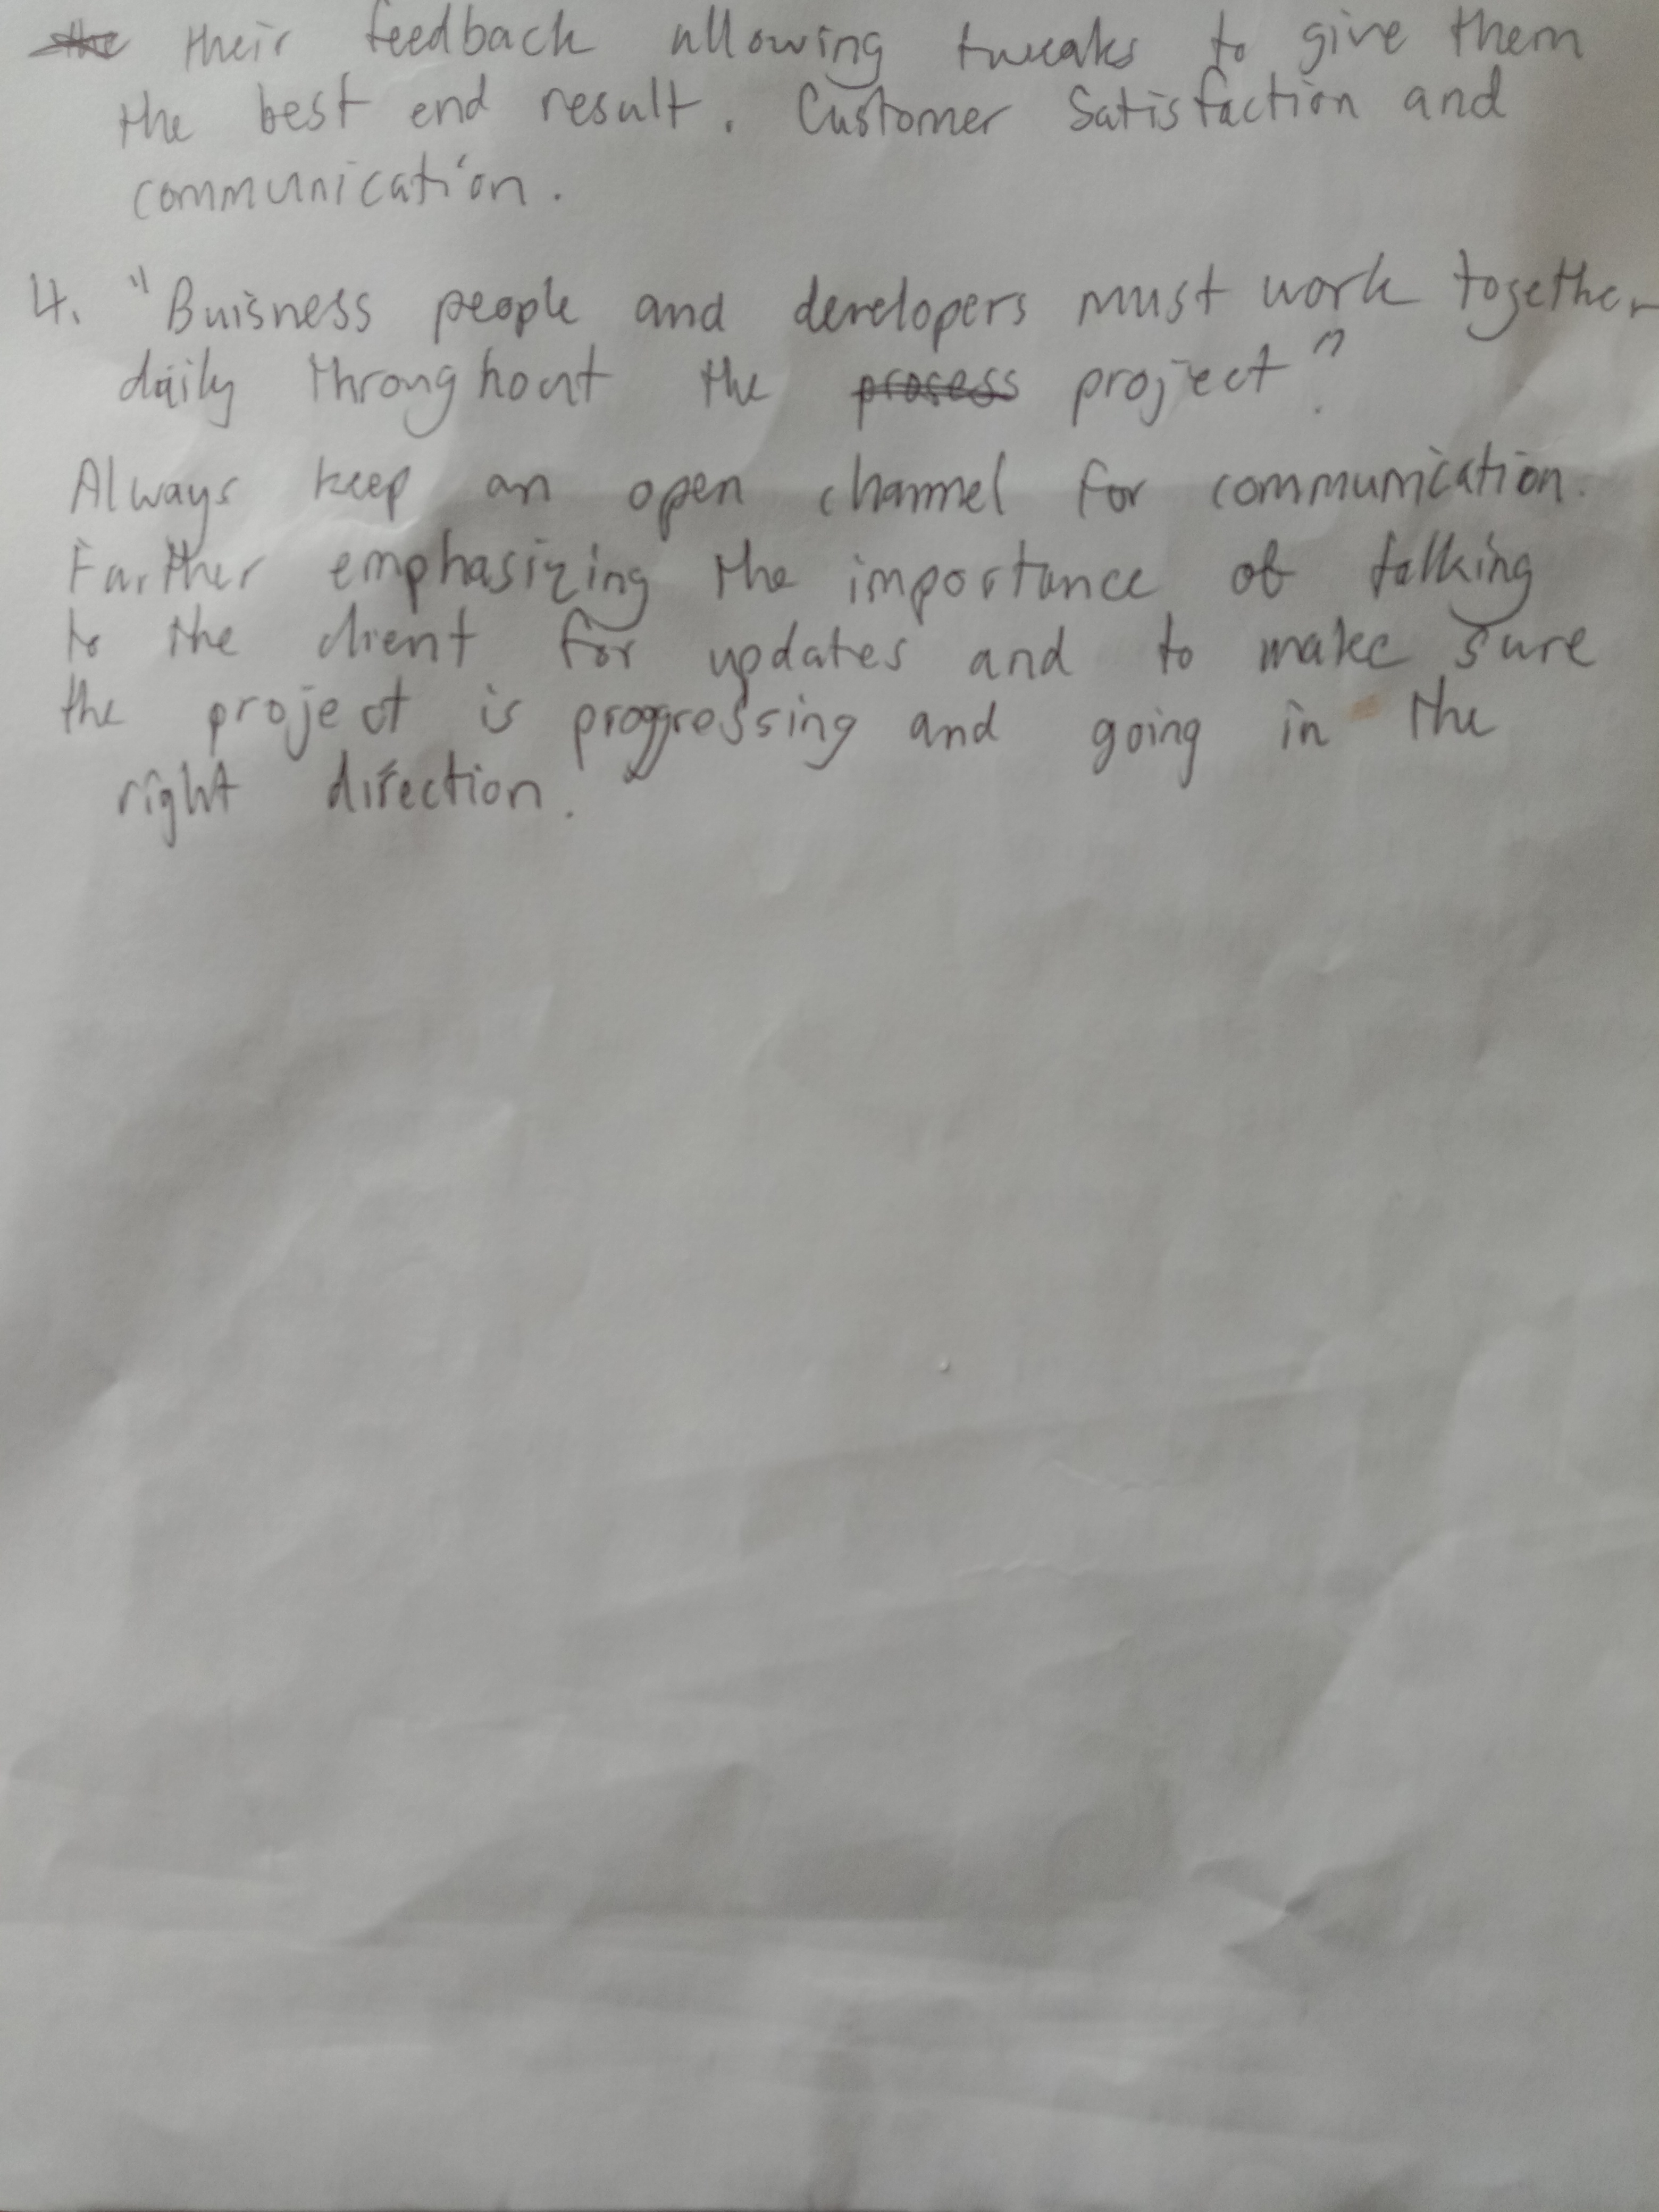 the their feedback allowing tweaks to give them
the best end result. Customer Satisfaction and
communication.
4. "Buisness people and developers must work together
daily throughout the prosess project".
Always keep an open channel for communication.
Further emphasizing the importance of talking
to the client for updates and to make sure
the project is progressing and going in the
right direction.